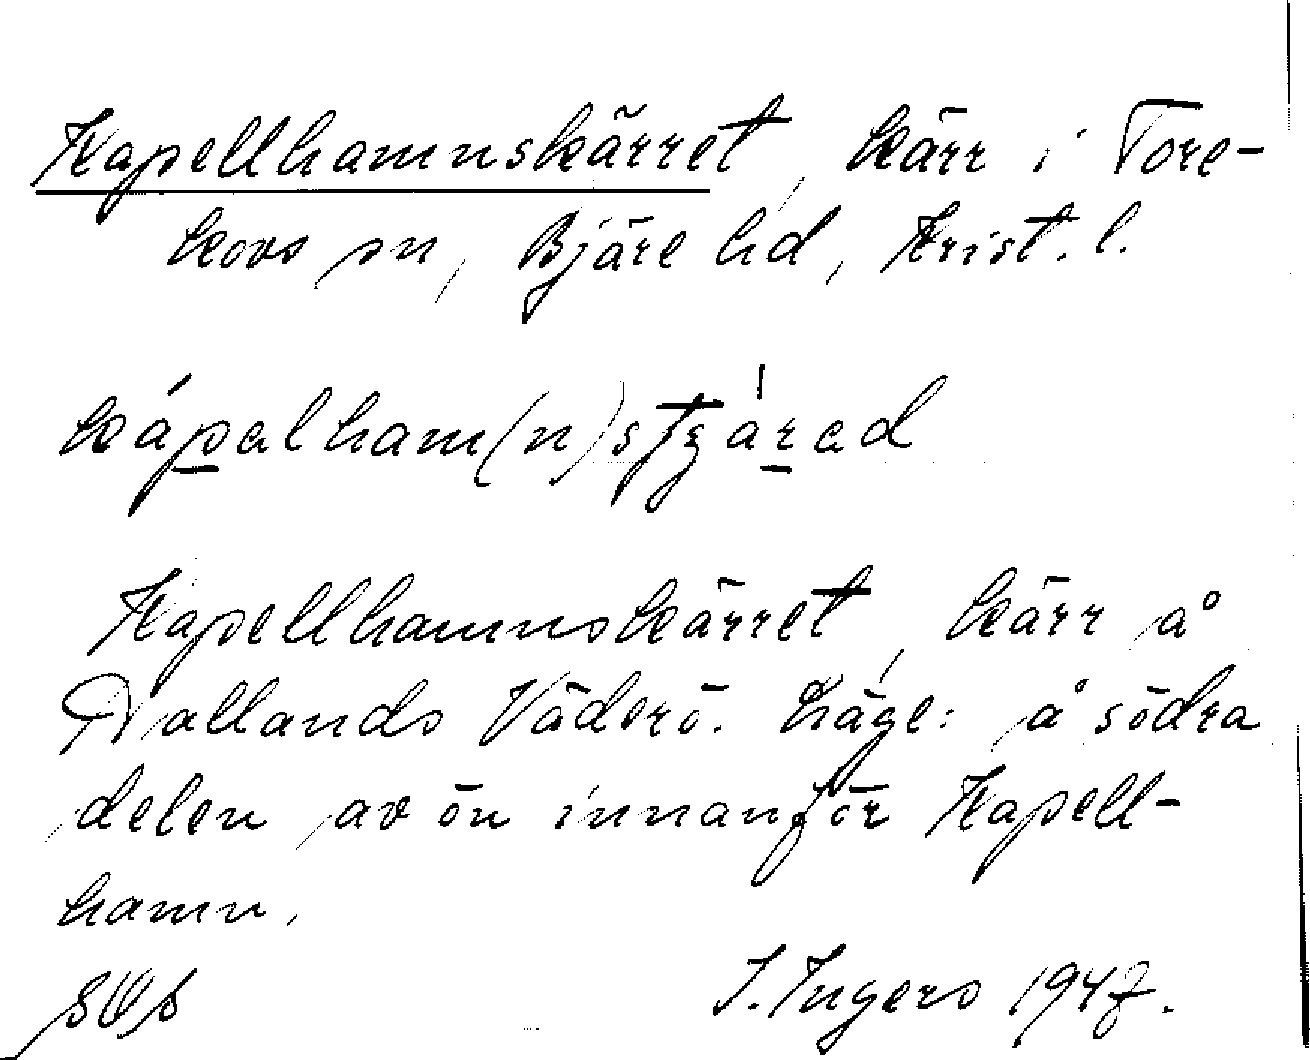 Kapellhamnskärret, kärr i Tore-
kovs sn, Bjäre hd, Krist. l.
kápalham(n)stʒárad
Kapellhamnskärret, kärr å
Hallands Väderö. Läge: å södra
delen av ön innanför Kapell-
hamn.
I. Ingers 1947.